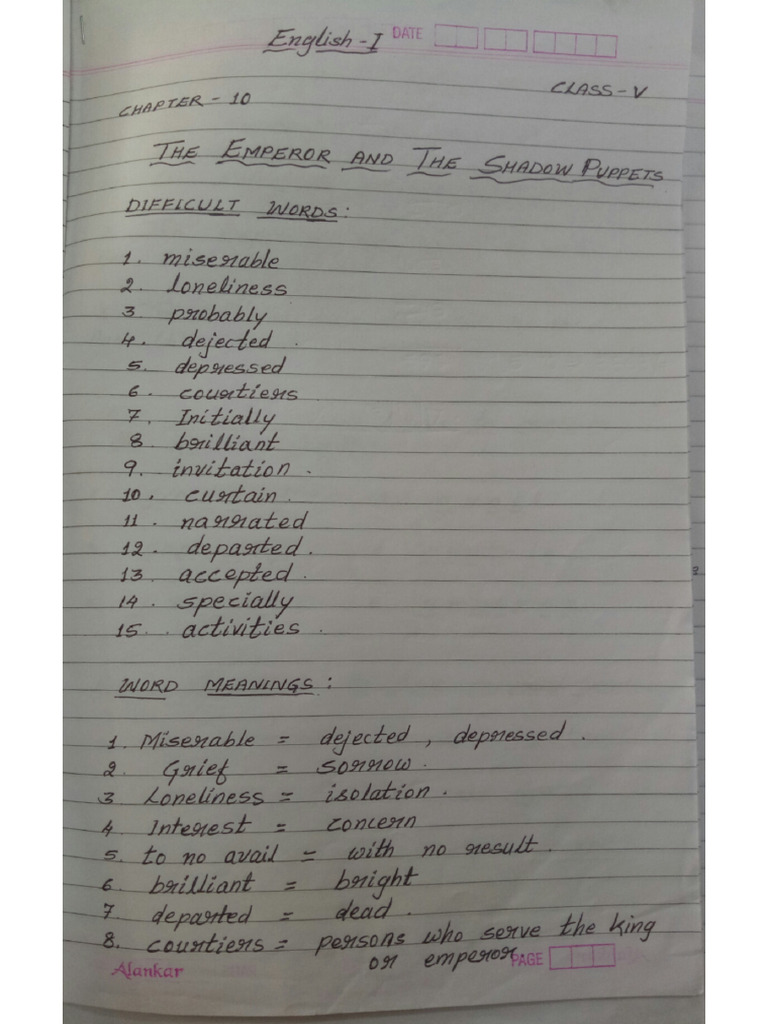 English-I DATE
CLASS-V
CHAPTER-10
THE EMPEROR AND THE SHADOW PUPPETS
DIFFICULT WORDS:
1. miserable
2. loneliness
3 probably
4. dejected.
5. depressed
6. courtiers
7. Initially
8 brilliant
9. invitation.
10. curtain.
11. narrated
12. departed.
13. accepted.
14. specially
15. activities.
WORD MEANINGS:
1. Miserable = dejected, depressed.
2. Grief = sorrow.
3 Loneliness = isolation.
4 Interest = concern
5. to no avail = with no result.
6. brilliant = bright
7. departed = dead.
8. courtiers = persons who serve the king
or emperor
Alankar PAGE